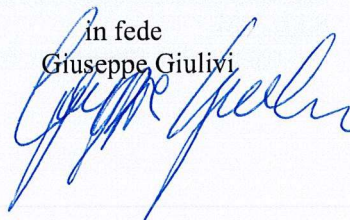 in fede
Giuseppe Giulivi